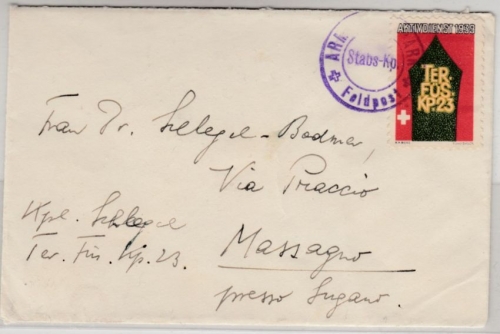 AKTIVDIENST 1939
TER.
FÜS.
KP.23
Stabs-Kp.
Feldpost
Frau Dr. Schlegel-Bodmer,
Via Praccio
Massagno
presso Lugano.
Kpl. Schlegel
Ter. Füs. Kp. 23.